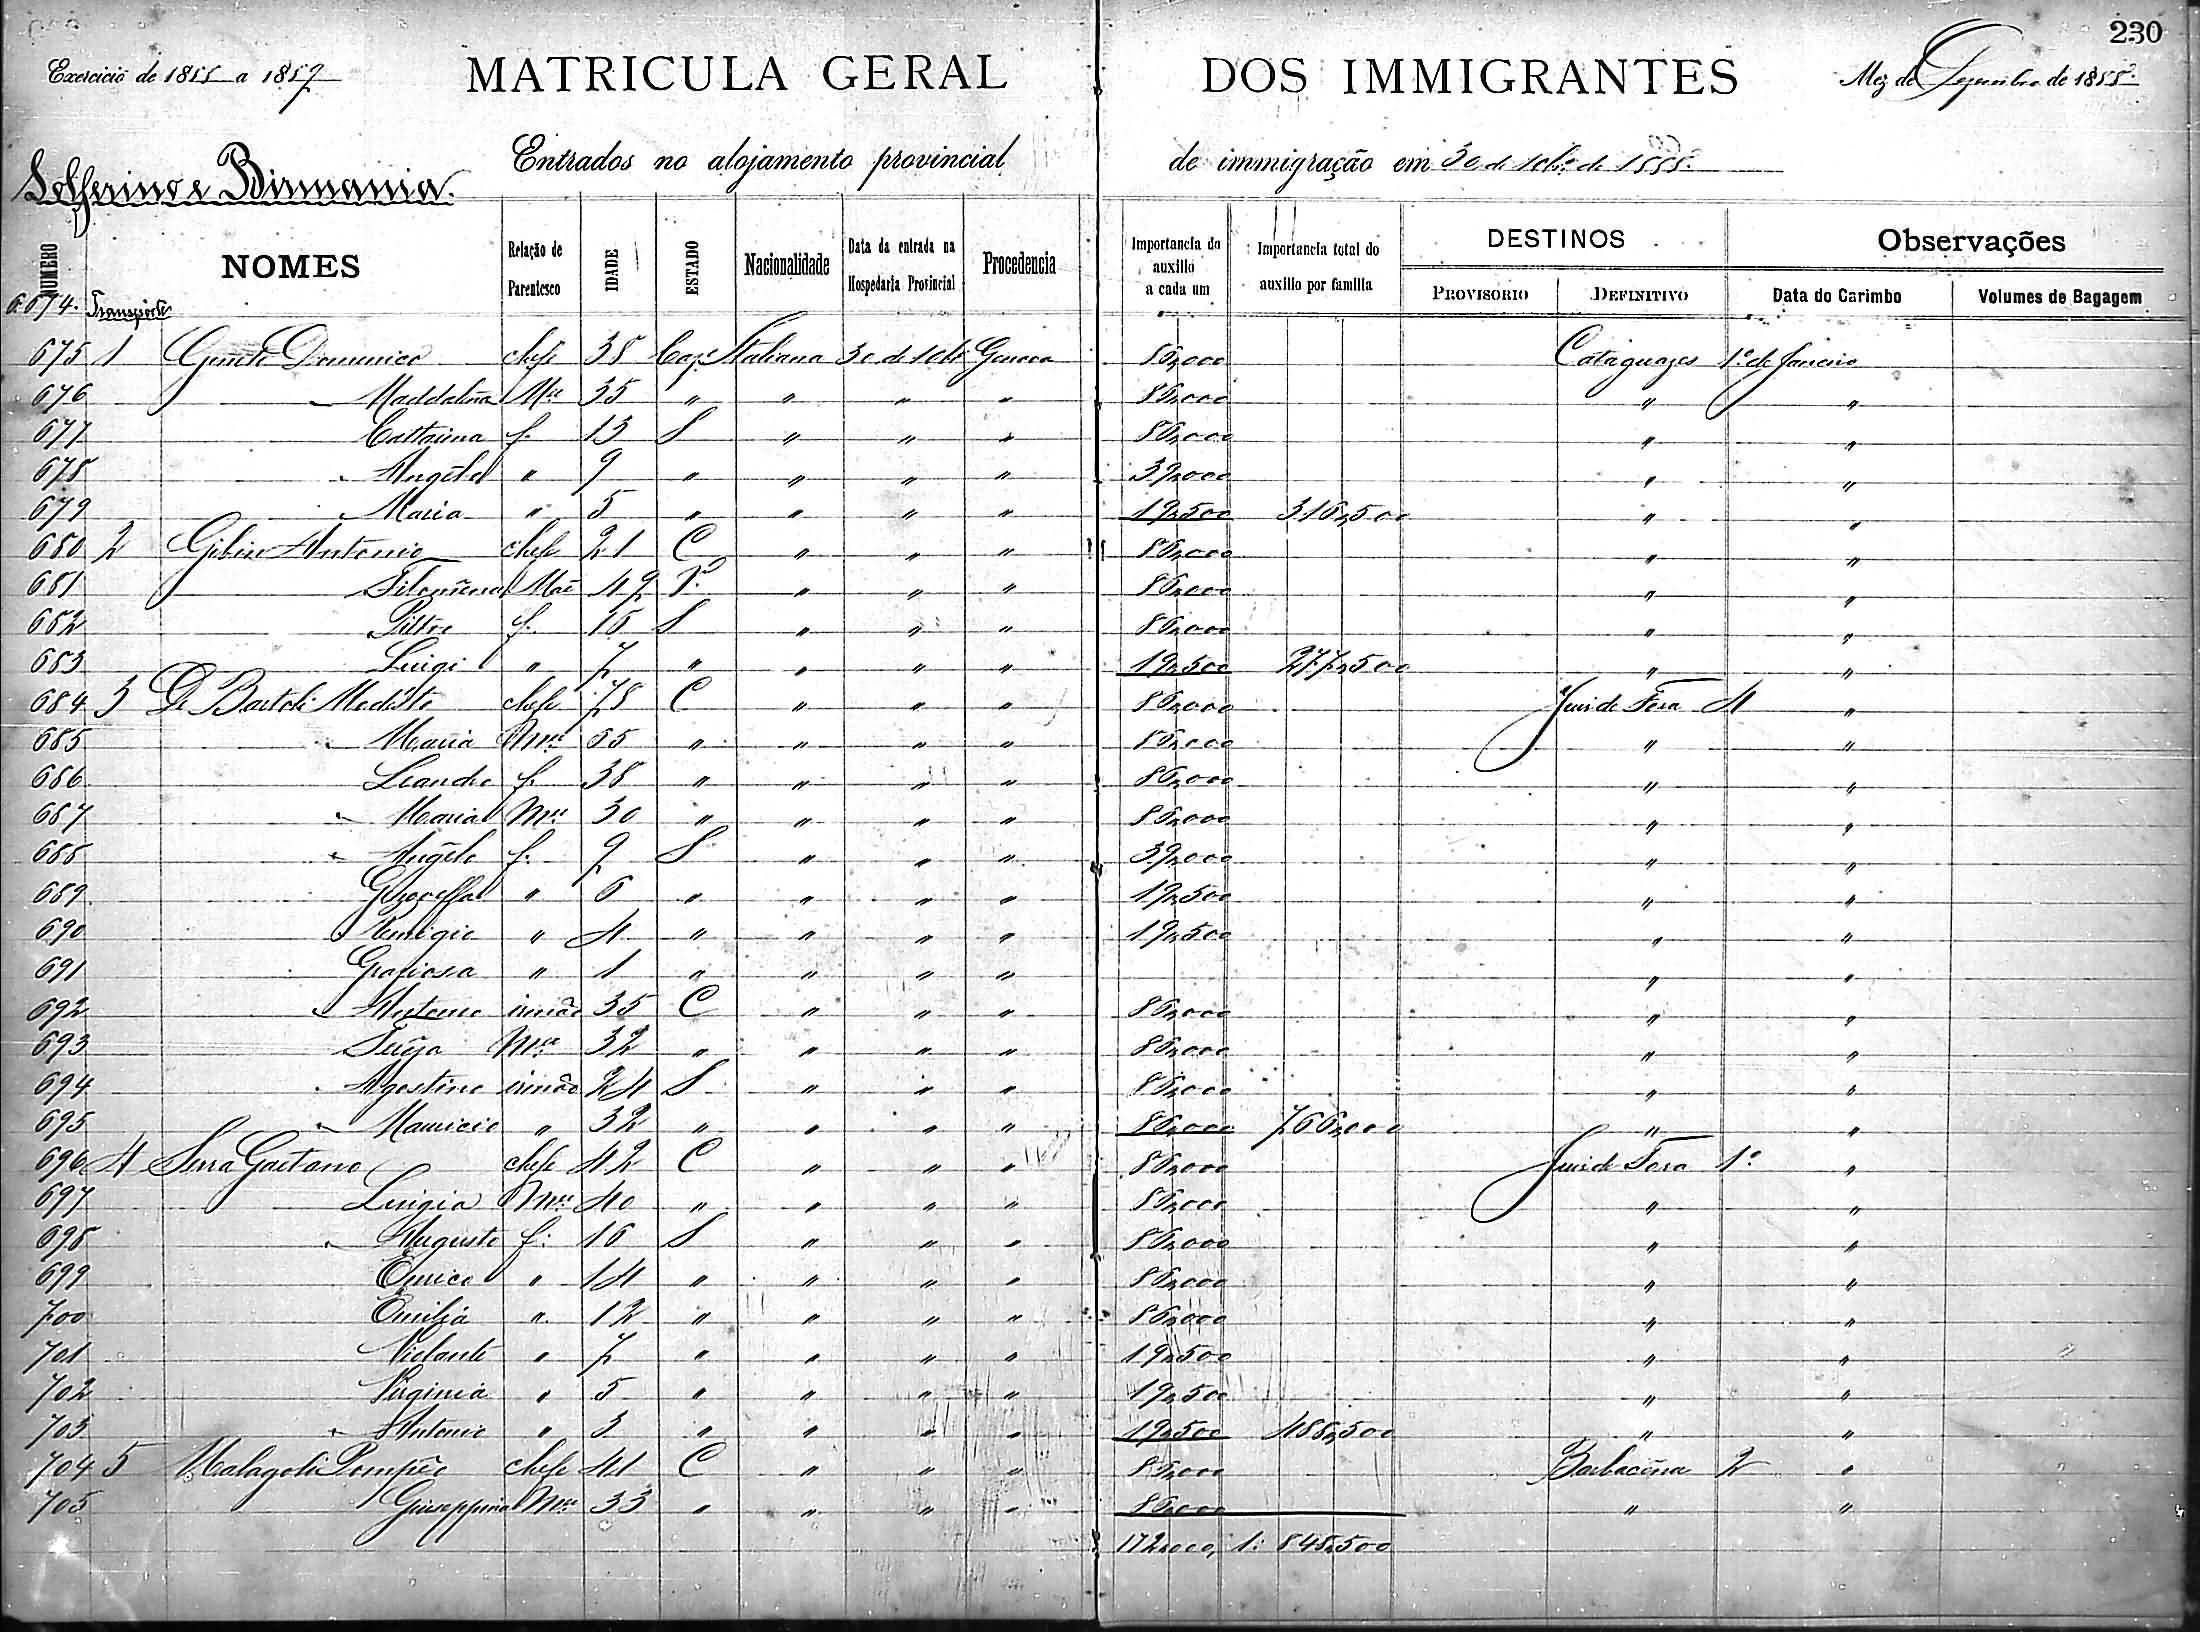 230
Exercicio de 1888 a 1889 MATRICULA GERAL DOS IMMIGRANTES Mez de Dezembro de 1888
Entrados no alojamento provincial de immigração em 30 de 10bro de 1888.
Solferino e Birmania.
NUMERO NOMES Relação de Parentesco IDADE ESTADO Nacionalidade Data da entrada na Hospedaria Provincial Procedencia Importancia do auxilio a cada um Importancia total do auxilio por familia DESTINOS PROVISORIO DEFINITIVO Observações Data do Carimbo Volumes de Bagagem
6674. Transporte
675 1 Domenico chefe 38 Caz. Italiana 30 de 10bro Genova 86,000 Cataguazes 1º de Janeiro
676 " Maddalena Mer 35 " " " " 86,000 " "
677 Cattarina f. 13 S " " " 86,000 " "
678 " Angelo " 9 " " " " 39,000 " "
679 " Maria " 5 " " " " 19,500 316,500 " "
680 2 Gibin Antonio chefe 21 C " " " 86,000 " "
681 Filomena Mãe 49 Va " " " 86,000 " "
682 Pietro f. 16 S " " " 86,000 " "
683 Luigi " 7 " " " " 19,500 277,500 " "
684 3 De Bartoli Modesto chefe 78 C " " " 86,000 Juiz de Fora 4 "
685 " Maria Mer 65 " " " " 86,000 " "
686 Leandro f. 38 " " " " 86,000 " "
687 " Maria Mer 30 " " " " 86,000 " "
688 " Angelo f. 9 S " " " 39,000 " "
689 Gioseffa " 6 " " " " 19,500 " "
690 Remigio " 4 " " " " 19,500 " "
691 Graziosa " 1 " " " " " "
692 " Antonio irmão 35 C " " " 86,000 " "
693 Mer 32 " " " " 86,000 " "
694 " Agostino irmão 24 S " " " 86,000 " "
695 " Mauricio " 32 " " " " 86,000 766,000 " "
696 4 Serra Gaetano chefe 42 C " " " 86,000 Juiz de Fora 1º "
697 Luigia Mer 40 " " " " 86,000 " "
698 " Augusto f. 16 S " " " 86,000 " "
699 Enrico " 14 " " " " 86,000 " "
700 Emilia " 12 " " " " 86,000 " "
701 Violante " 7 " " " " 19,500 " "
702 Virginia " 5 " " " " 19,500 " "
703 " Antonio " 3 " " " " 19,500 488,500 " "
704 5 Malagoli Pompeo chefe 41 C " " " 86,000 Barbacena 2 "
705 Giuseppina Mer 33 " " " " 86,000 " "
172,000, 1: 848,500